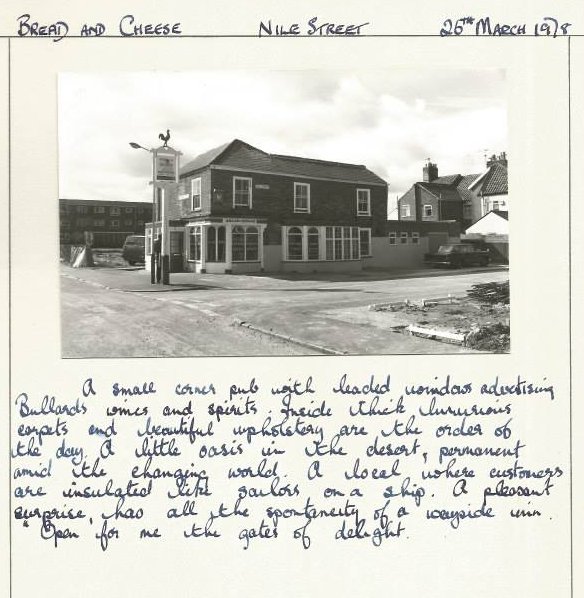 BREAD AND CHEESE NILE STREET 26TH MARCH 1978
A small corner pub with leaded windows advertising
Bullards wines and spirits. Inside thick luxurious
carpets and beautiful upholstery are the order of
the day. A little oasis in the desert, permanent
amid the changing world. A local where customers
are insulated like sailors on a ship. A pleasant
surprise, has all the spontaneity of a wayside inn.
"Open for me the gates of delight.